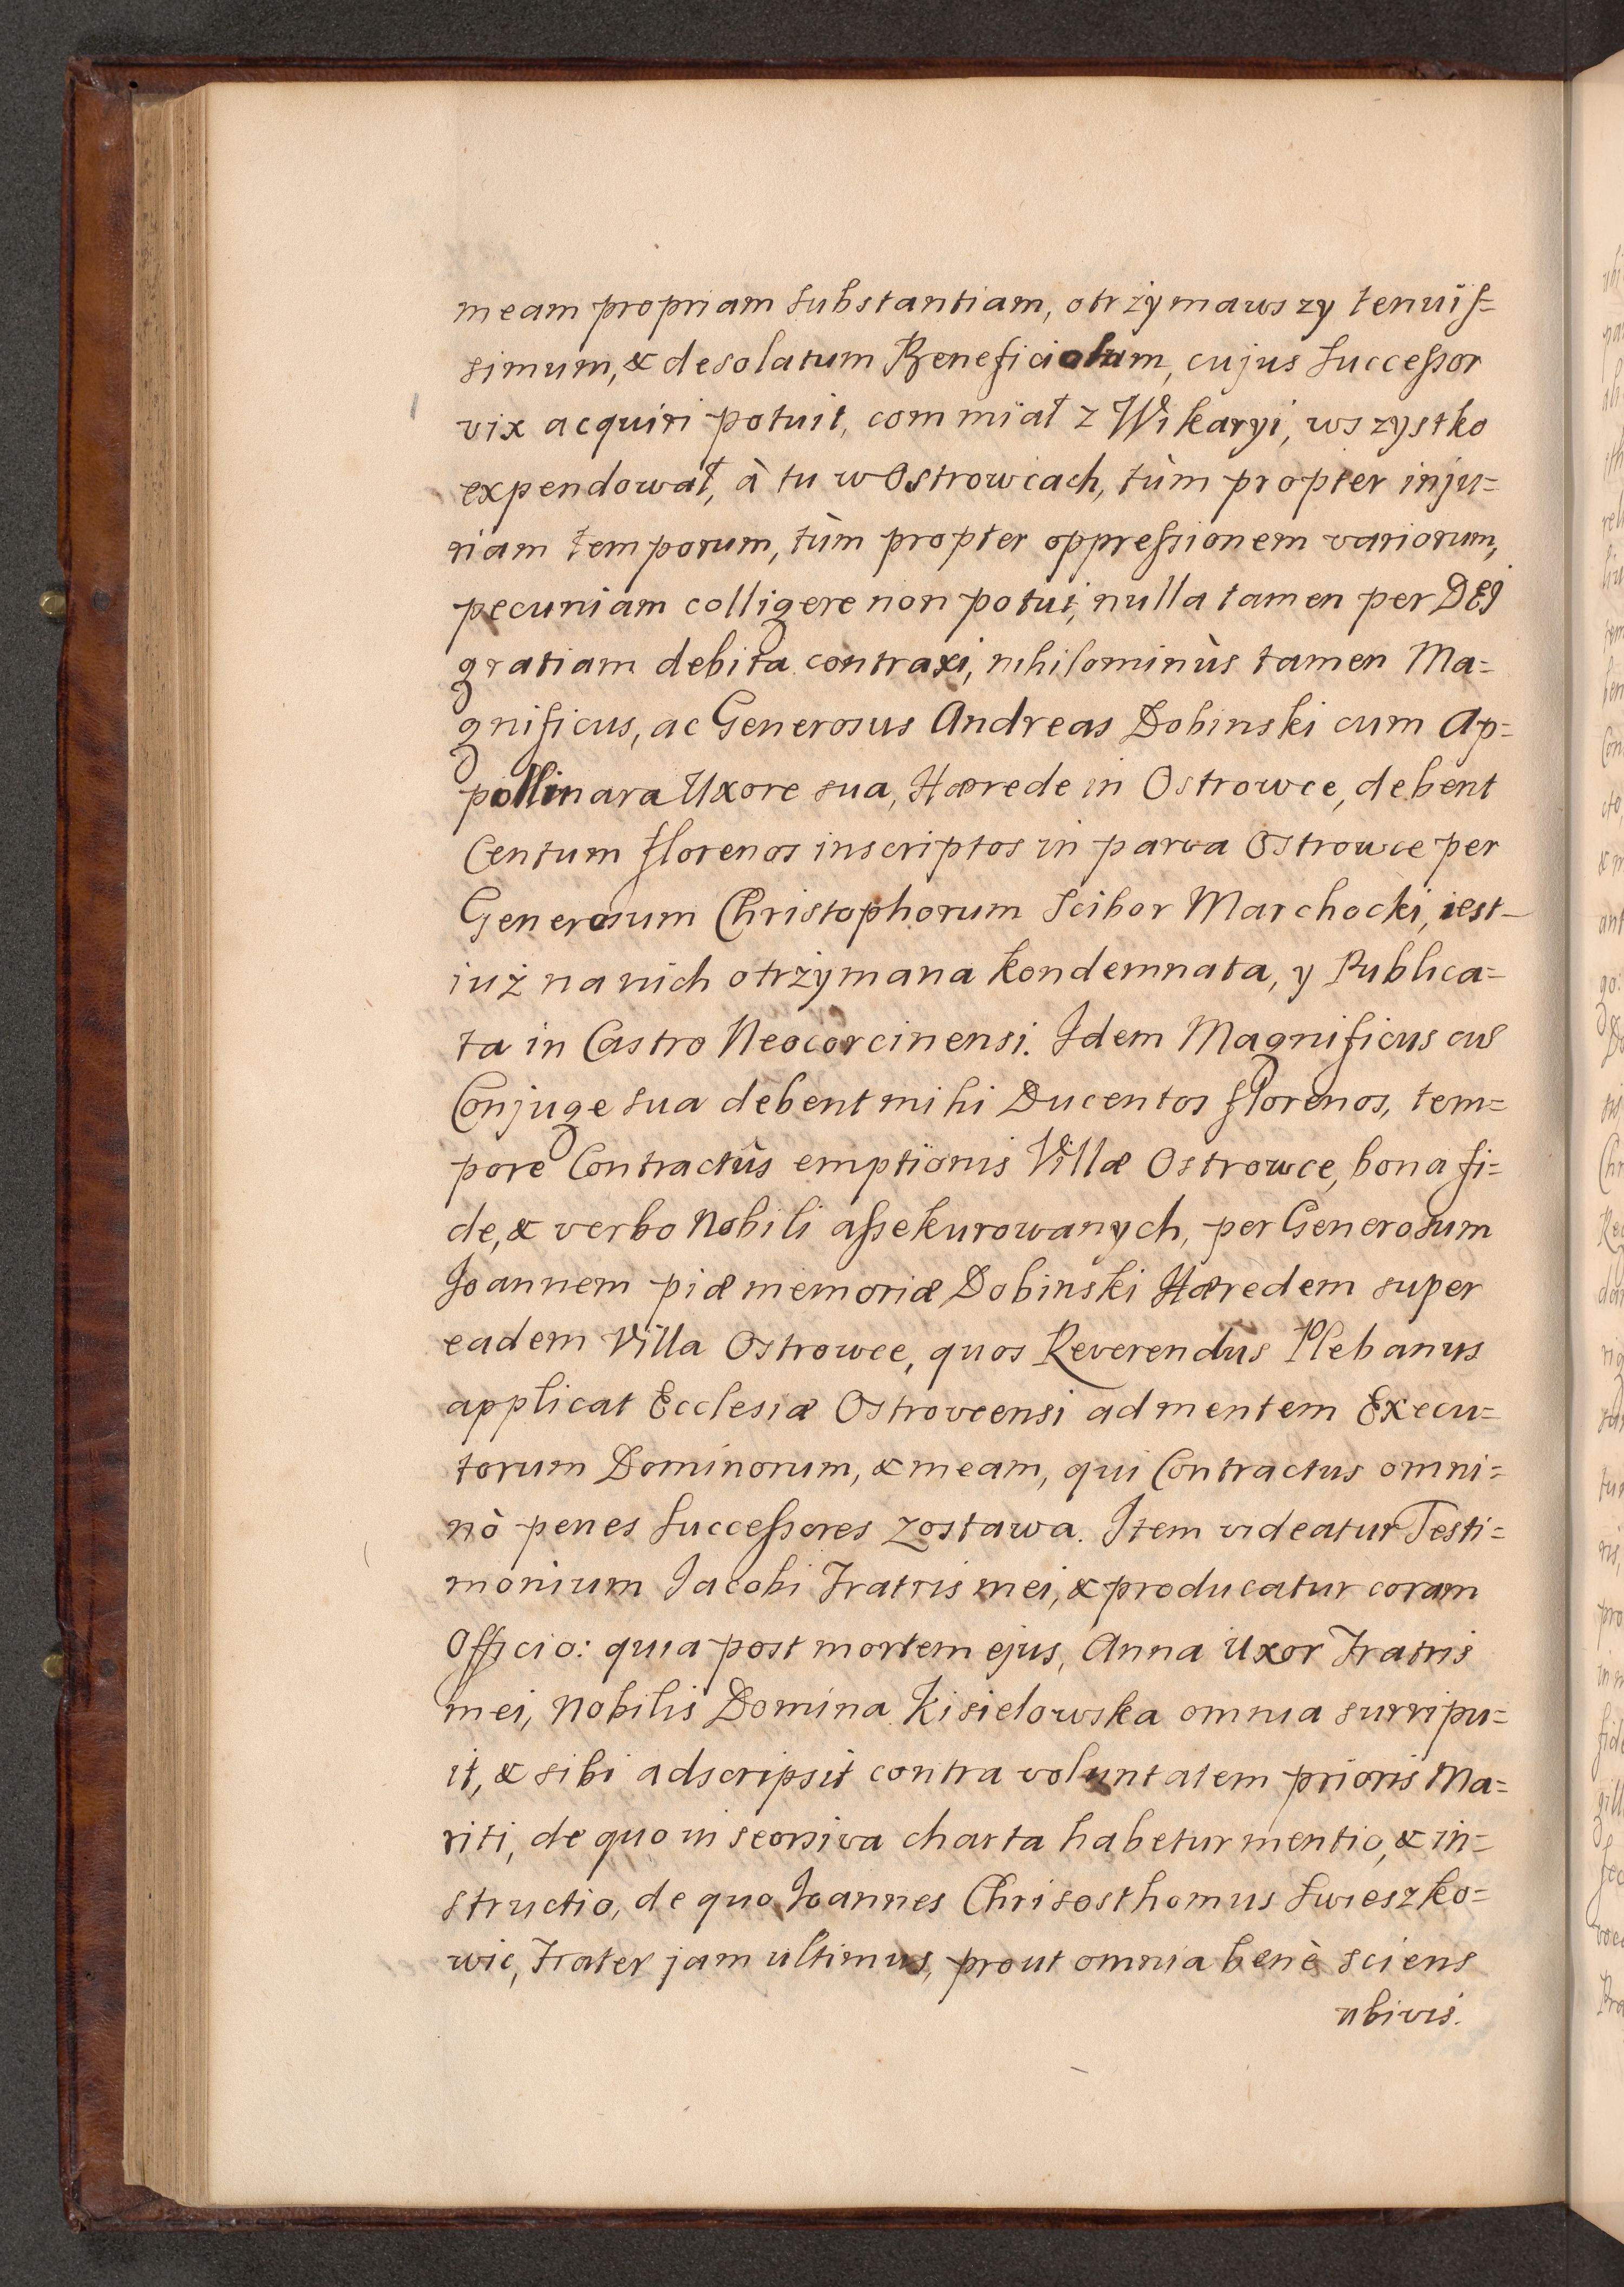 meam propriam substantiam, otrżymawszy tenuis=
simum, & desolatum Beneficiolum, cujus successor
vix acquiri potuit, com miał z Wikaryi, wszystko
expendował, à tu w Ostrowcach, tùm propter inju=
riam temporum, tùm propter oppressionem variorum,
pecuniam colligere non potui, nulla tamen per DEI
gratiam debita contraxi, nihilominùs tamen Ma=
gnificus, ac Generosus Andreas Dobinski cum Ap=
pollinara Uxore sua, Hærede in Ostrowce, debent
Centum florenos inscriptos in parva Ostrowce per
Generosum Christophorum Scibor Marchocki, iest
iuż na nich otrżymana kondemnata, y Publica=
ta in Castro Neocorcinensi. Idem Magnificus cum
Conjuge sua debent mihi Ducentos florenos, tem=
pore Contractùs emptionis Villæ Ostrowce, bona fi=
de, & verbo Nobili assekurowanych, per Generosum
Joannem piæ memoriæ Dobinski Hæredem super
eadem Villa Ostrowce, quos Reverendus Plebanus
applicat Ecclesiæ Ostroveensi ad mentem Execu=
torum Dominorum, & meam, qui Contractus omni=
nò penes successores zostawa. Item videatur Testi=
monium Jacobi Fratris mei, & producatur coram
Officio: quia post mortem ejus, Anna Uxor Fratris
mei, Nobilis Domina Kisielowska omnia surripu=
it, & sibi adscripsit contra voluntatem prioris Ma=
riti, de quo in seorsiva charta habetur mentio, & in=
structio, de quo Joannes Chrisosthomus Swieszko=
wic, Frater jam ultimus, prout omnia benè sciens
ubivis.